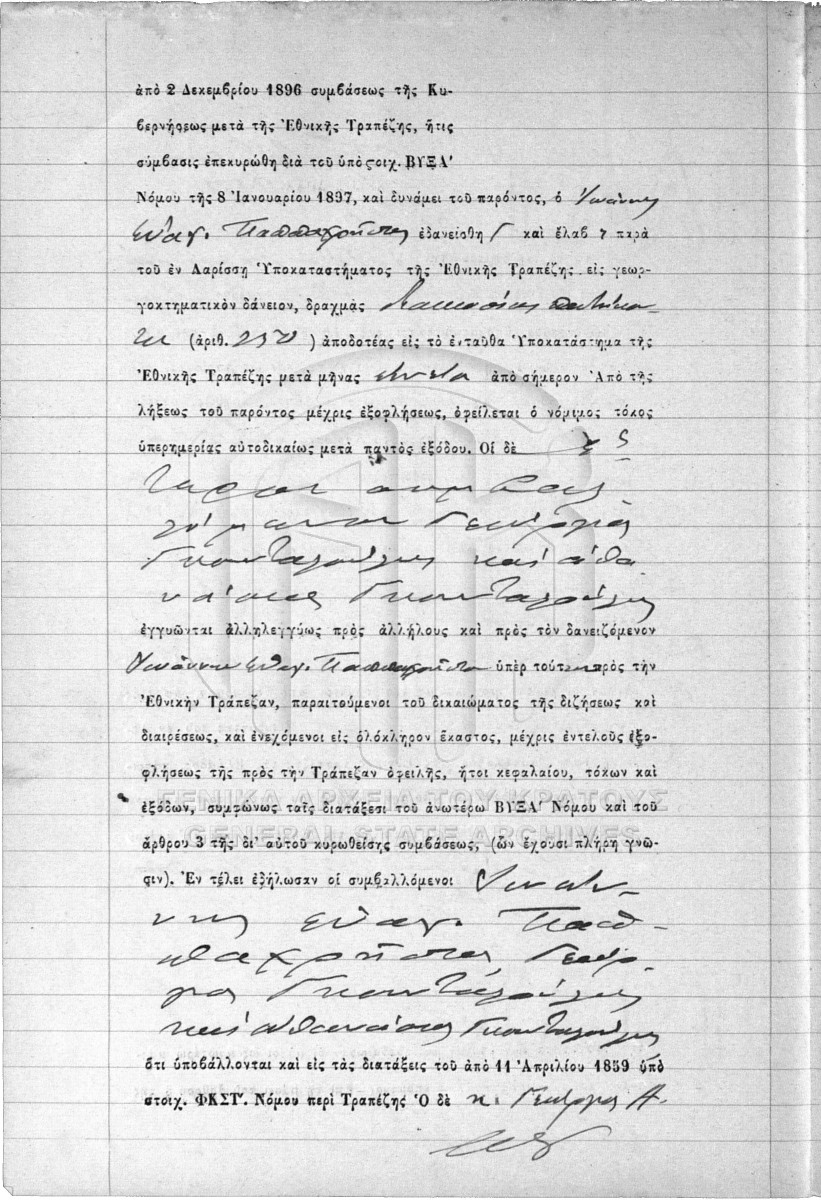 ἀπὸ 2 Δεκεμβρίου 1896 συμβάσεως τῆς Κυ-
βερνήσεως μετὰ τῆς Ἐθνικῆς Τραπέζης, ἥτις
σύμβασις ἐπεκυρώθη διὰ τοῦ ὑπὸ στοιχ. ΒΥΞΑʹ
Νόμου τῆς 8 Ἰανουαρίου 1897, καὶ δυνάμει τοῦ παρόντος, ὁ Ἰωάννης
Εὐαγ. Παππαχρῆστος ἐδανείσθη καὶ ἔλαβε παρὰ
τοῦ ἐν Λαρίσσῃ Ὑποκαταστήματος τῆς Ἐθνικῆς Τραπέζης εἰς γεωρ-
γοκτηματικὸν δάνειον, δραχμὰς διακοσίας πεντήκον-
τα (ἀριθ. 250) ἀποδοτέας εἰς τὸ ἐνταῦθα Ὑποκατάστημα τῆς
Ἐθνικῆς Τραπέζης μετὰ μῆνας ἐννέα ἀπὸ σήμερον Ἀπὸ τῆς
λήξεως τοῦ παρόντος μέχρις ἐξοφλήσεως, ὀφείλεται ὁ νόμιμος τόκος
ὑπερημερίας αὐτοδικαίως μετὰ παντὸς ἐξόδου. Οἱ δὲ
συμβαλ-
λόμενοι Γεώργιος
καὶ Ἀθα
νάσιος
ἐγγυῶνται ἀλληλεγγύως πρὸς ἀλλήλους καὶ πρὸς τὸν δανειζόμενον
Ἰωάννην Εὐαγ. Παππαχρῆστον ὑπὲρ τούτου πρὸς τὴν
Ἐθνικὴν Τράπεζαν, παραιτούμενοι τοῦ δικαιώματος τῆς διζήσεως καὶ
διαιρέσεως, καὶ ἐνεχόμενοι εἰς ὁλόκληρον ἕκαστος, μέχρις ἐντελοῦς ἐξο-
φλήσεως τῆς πρὸς τὴν Τράπεζαν ὀφειλῆς, ἤτοι κεφαλαίου, τόκων καὶ
ΓΕΝΙΚΑ ΑΡΧΕΙΑ ΤΟΥ ΚΡΑΤΟΥΣ
ἐξόδων, συμφώνως ταῖς διατάξεσι τοῦ ἀνωτέρω ΒΥΞΑʹ Νόμου καὶ τοῦ
GENERAL STATE ARCHIVES
ἄρθρου 3 τῆς δι' αὐτοῦ κυρωθείσης συμβάσεως, (ὧν ἔχουσι πλήρη γνῶ-
σιν). Ἐν τέλει ἐδήλωσαν οἱ συμβαλλόμενοι Ἰωάν-
νης Εὐαγ. Παπ-
παχρῆστος Γεώρ-
γιος
καὶ Ἀθανάσιος
ὅτι ὑποβάλλονται καὶ εἰς τὰς διατάξεις τοῦ ἀπὸ 11 Ἀπριλίου 1859 ὑπὸ
στοιχ. ΦΚΣΤʹ. Νόμου περὶ Τραπέζης Ὁ δὲ κ. Γεώργιος Α.